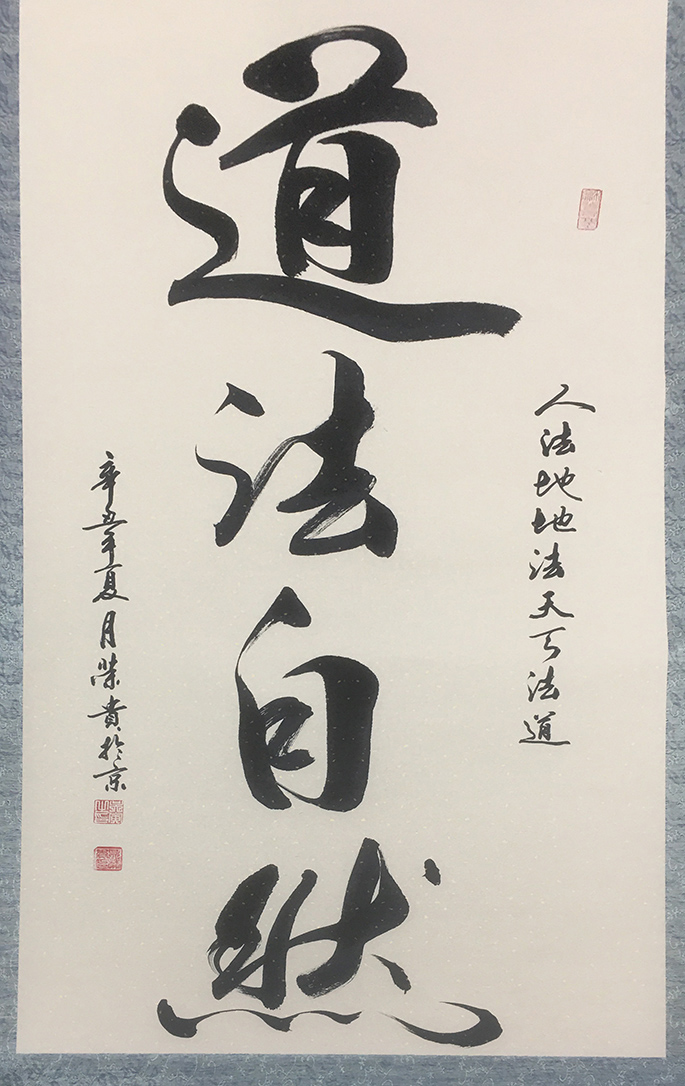 人法地地法天天法道
道法自然
辛丑年夏月榮貴於京